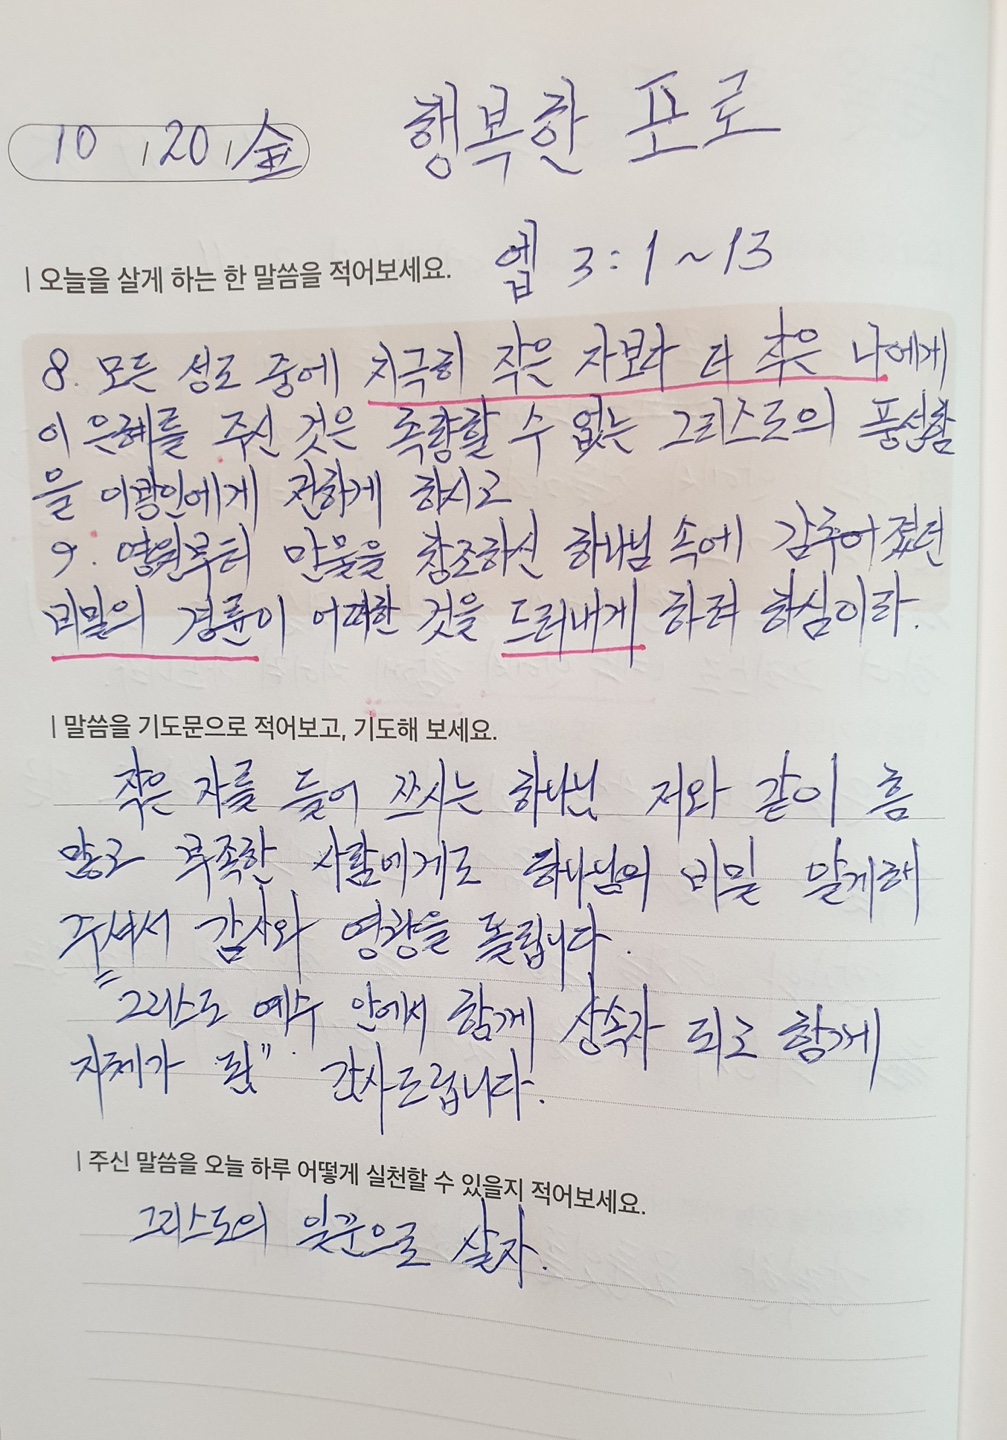 행복한 포로
10 20 金
| 오늘을 살게 하는 한 말씀을 적어보세요.
엡 3:1~13
8. 모든 성도 중에 지극히 작은 자보다 더 작은 나에게
이 은혜를 주신 것은 측량할 수 없는 그리스도의 풍성함
을 이방인에게 전하게 하시고
9. 영원부터 만물을 창조하신 하나님 속에 감추어졌던
비밀의 경륜이 어떠한 것을 드러내게 하려 하심이라.
| 말씀을 기도문으로 적어보고, 기도해 보세요.
작은 자를 들어 쓰시는 하나님 저와 같이 흠
많고 부족한 사람에게도 하나님의 비밀 알게해
주셔서 감사와 영광을 돌립니다.
"그리스도 예수 안에서 함께 상속자 되고 함께
지체가 됨" 감사드립니다.
| 주신 말씀을 오늘 하루 어떻게 실천할 수 있을지 적어보세요.
그리스도의 일꾼으로 살자.